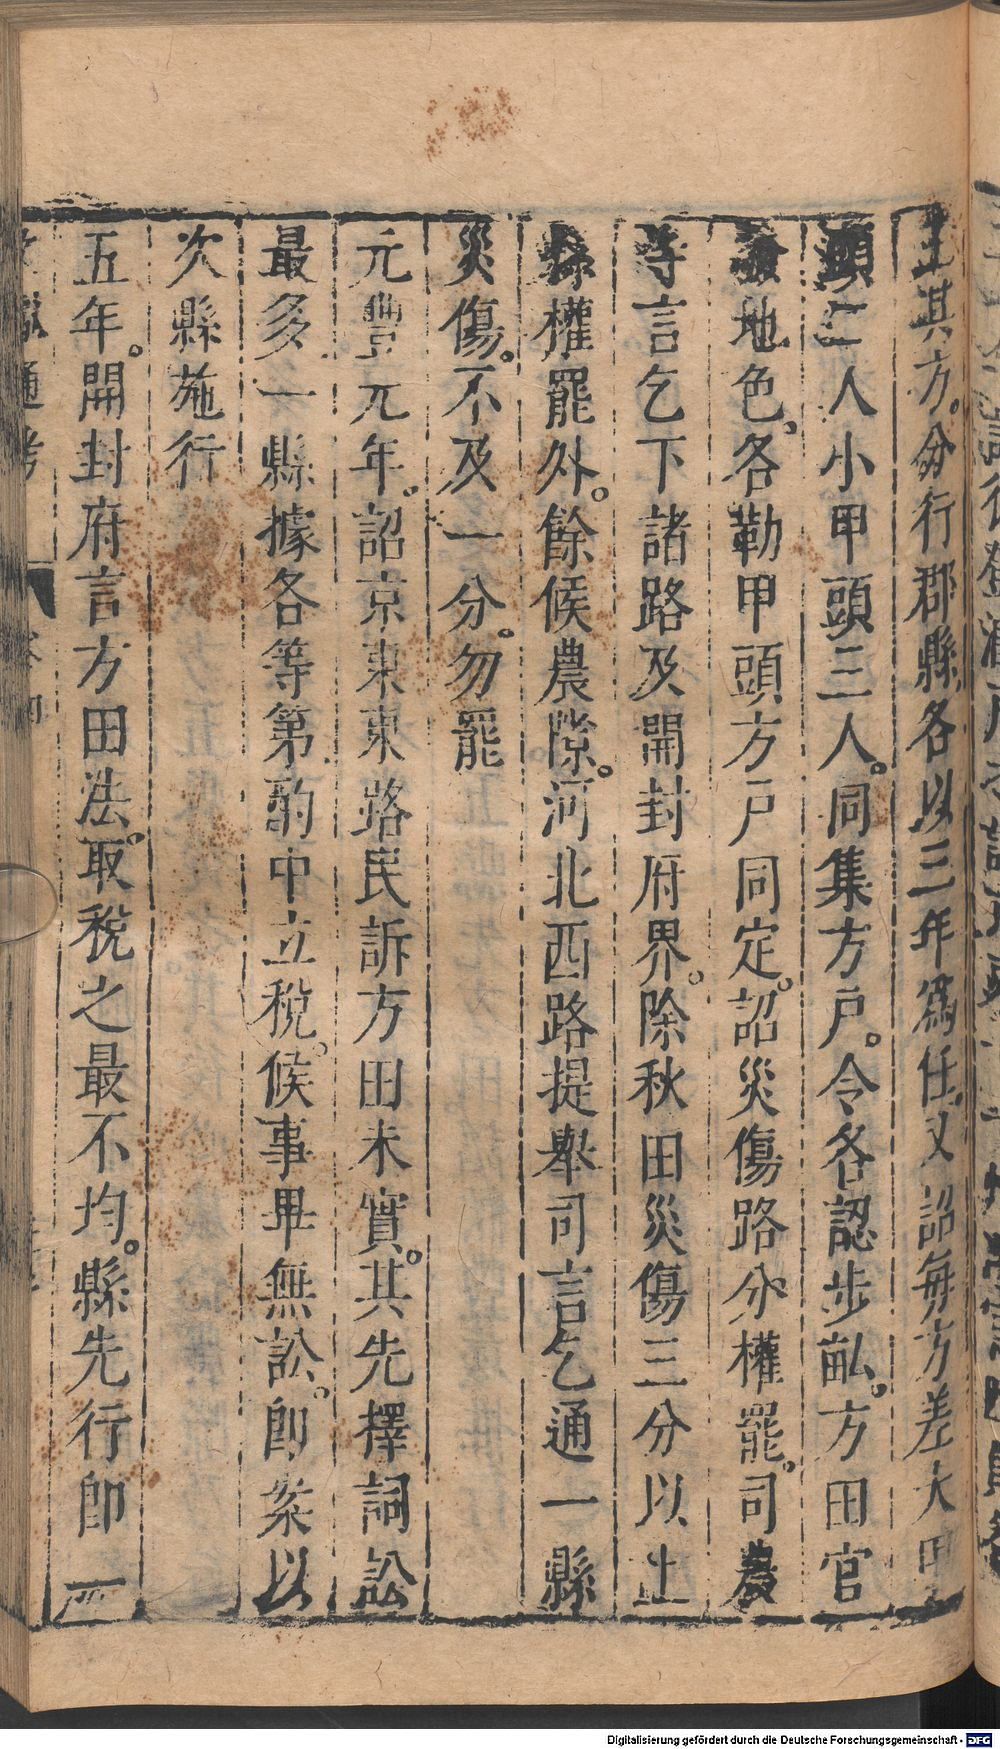 主其方。分行郡縣。各以三年爲任。又詔每方差大甲
頭二人小甲頭三人。同集方戶。令各認步畝。方田官
驗地色。各勒甲頭方戶同定。詔災傷路分權罷。司農
寺言乞下諸路及開封府界。除秋田災傷三分以上
縣權罷外。餘候農隙。河北西路提舉司言乞通一縣
災傷。不及一分。勿罷
元豐元年。詔京東東路民訴方田未實。其先擇詞訟
最多一縣據各等第酌中立稅。候事畢無訟。卽案以
次縣施行
五年。開封府言方田法。取稅之最不均。縣先行卽
一四
文獻通考 卷四
Digitalisierung gefördert durch die Deutsche Forschungsgemeinschaft - DFG